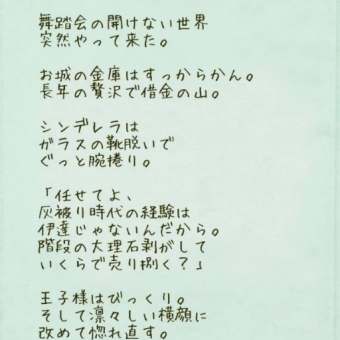 舞踏会の開けない世界
突然やって来た。
お城の金庫はすっからかん。
長年の贅沢で借金の山。
シンデレラは
ガラスの靴脱いで
ぐっと腕捲り。
「任せてよ、
灰被り時代の経験は
伊達じゃないんだから。
階段の大理石剥がして
いくらで売り捌く？」
王子様はびっくり。
そして凛々しい横顔に
改めて惚れ直す。